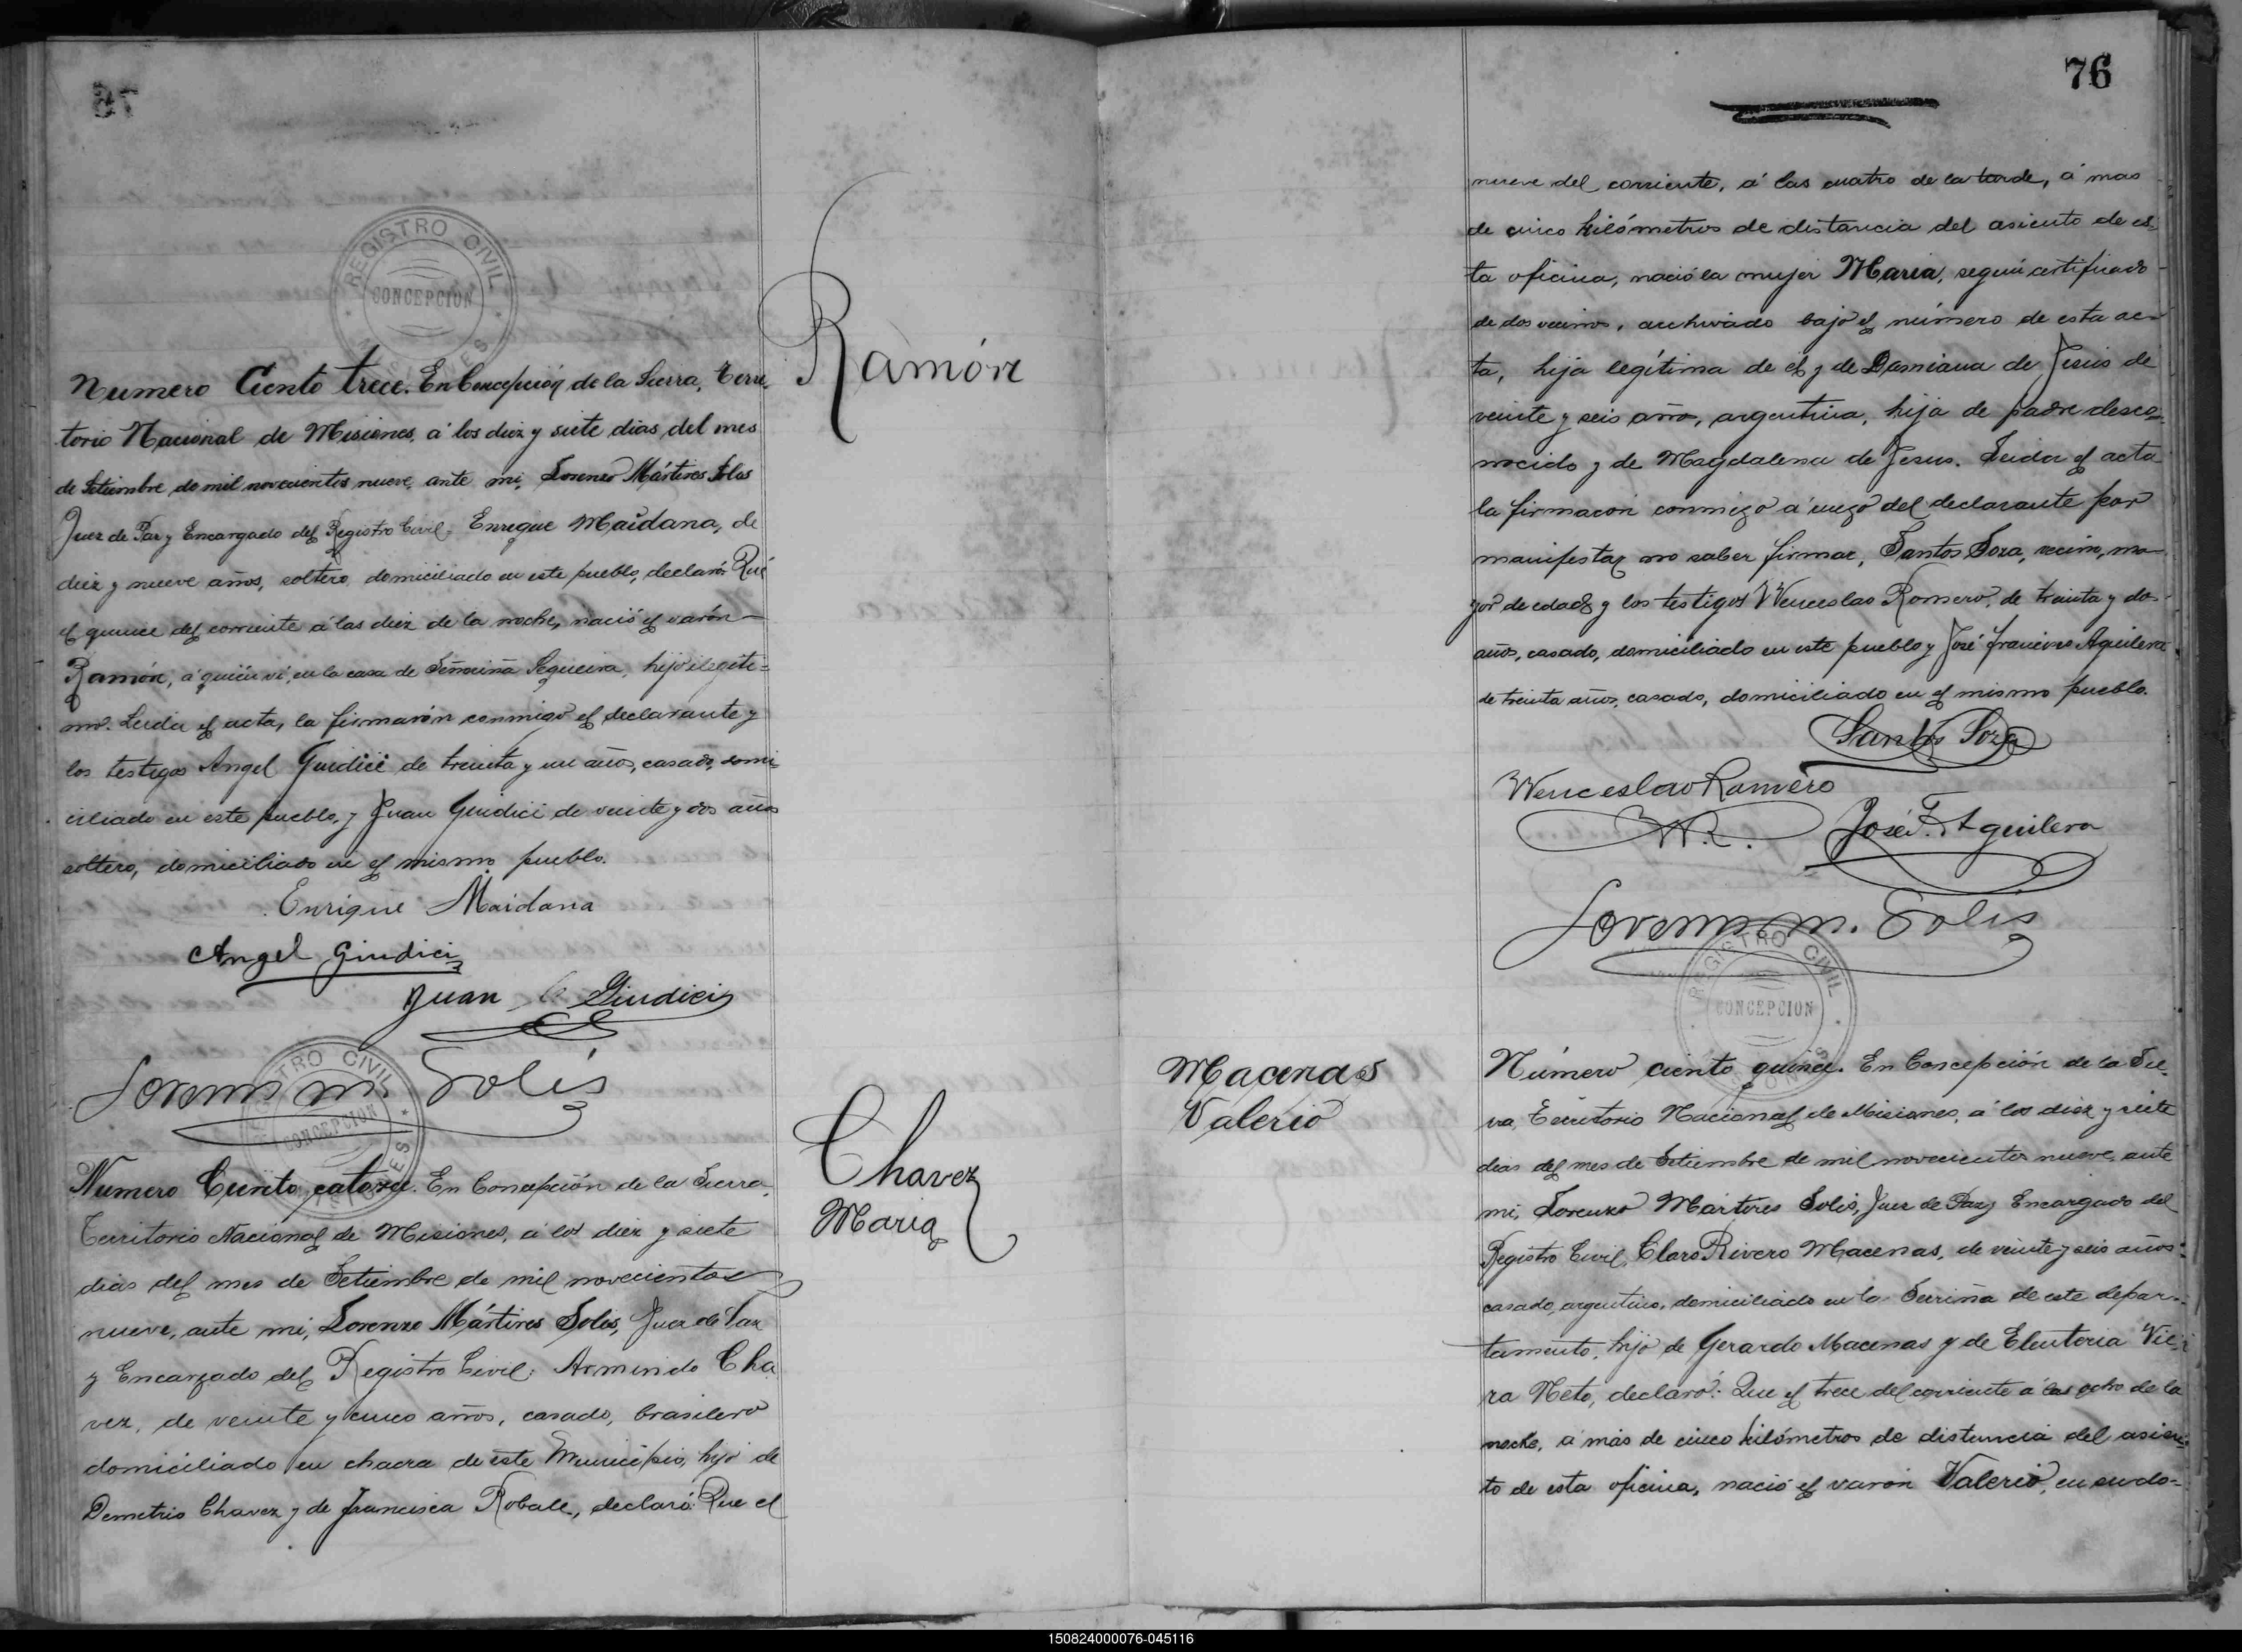 76
REGISTRO CIVIL
CONCEPCION
MISIONES
Ramón
Numero Ciento trece. En Concepción de la Sierra, Terri
torio Nacional de Misiones, á los diez y siete dias del mes
de Setiembre de mil novecientos nueve, ante mi, Lorenzo Mártires Solis
Juez de Paz y Encargado del Registro Civil, Enrique Maidana, de
diez y nueve años, soltero, domiciliado en este pueblo, declaró: Que
el quince del corriente á las diez de la noche, nació el varón
Ramón, á quién ví, en la casa de Señoriña Sequeira, hijo ilegíti=
mo. Leida el acta, la firmarón conmigo el declarante y
los testigos Angel Guidici de treinta y un años, casado, domi-
ciliado en este pueblo, y Juan Guidici de veinte y dos años
soltero, domiciliado en el mismo pueblo.
Enrique Maidana
Angel Giudici
Juan Giudici
Lorenzo M. Solis
REGISTRO CIVIL
CONCEPCION
MISIONES
Chavez
Maria
Numero Ciento catorce. En Concepción de la Sierra,
Territorio Nacional de Misiones, á los diez y siete
dias del mes de Setiembre de mil novecientos
nueve, ante mi, Lorenzo Mártires Solis, Juez de Paz
y Encargado del Registro Civil; Armindo Cha
vez, de veinte y cinco años, casado, brasilero
domiciliado en chacra de este Municipio, hijo de
Demetrio Chavez y de Francisca Robale, declaró: Que el
76
nueve del corriente, á las cuatro de la tarde, á mas
de cinco kilómetros de distancia del asiento de es-
ta oficina, nació la mujer Maria, según certificado
de dos vecinos, archivado bajo el número de esta ac-
ta, hija legítima de el y de Damiana de Jesús de
veinte y seis años, argentina, hija de padre desco-
nocido y de Magdalena de Jesus. Leida el acta
la firmaron conmigo á ruego del declarante por
manifestar no saber firmar, Santos Soza, vecino, ma-
yor de edad y los testigos Wenceslao Romero, de treinta y dos
años, casado, domiciliado en este pueblo y José Francisco Aguilera
de treinta años, casado, domiciliado en el mismo pueblo.
Santos Soza
Wenceslao Romero
W. R.
José F. Aguilera
Lorenzo M. Solis
REGISTRO CIVIL
CONCEPCION
MISIONES
Macenas
Valerio
Número ciento quince. En Concepción de la Sie-
rra, Territorio Nacional de Misiones, á los diez y siete
dias del mes de Setiembre de mil novecientos nueve, ante
mi, Lorenzo Mártires Solis, Juez de Paz y Encargado del
Registro Civil, Claro Rivero Macenas, de veinte y seis años
casado, argentino, domiciliado en la de este depar-
tamento, hijo de Gerardo Macenas y de Eleuteria Viei
ra Neto, declaró: Que el trece del corriente á las ocho de la
noche, á más de cinco kilómetros de distancia del asien-
to de esta oficina, nació el varón Valerio, en su do-
150824000076-045116